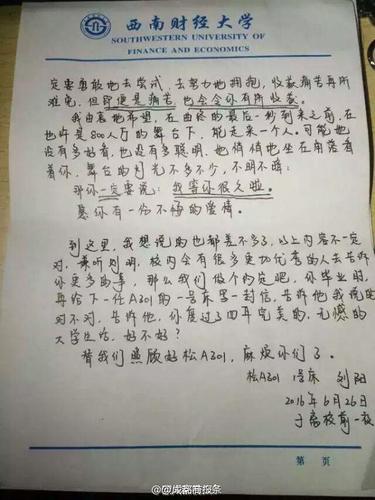 西南财经大学
SOUTHWESTERN UNIVERSITY OF
FINANCE AND ECONOMICS
定要勇敢地去尝试,去努力地拥抱,收获痛苦再所
难免,但即便是痛苦,也会令你有所收获。
我由衷地希望,在曲终的最后一秒到来之前,在
也许是800人厅的舞台下,能走来一个人。可能她
没有多好看,也没有多聪明,她悄悄地坐在角落看
着你,舞台的灯光不多不少,不明不暗:
那你一定要说:我等你很久啦。
愿你有一份不悔的爱情。
到这里,我想说的也都差不多了,以上内容不一定
对,兼听则明,校内会有很多更加优秀的人去告诉
你更多的事,那么我们做个约定吧,你毕业时,
再给下一任A301的一号床写一封信,告诉他我说的
对不对,告诉他,你度过了四年完美的,无憾的
大学生活,好不好?
替我们照顾好松A301,麻烦你们了。
松A301 1号床 刘阳
2016年6月26日
于离校前一夜
第 页
@成都商报